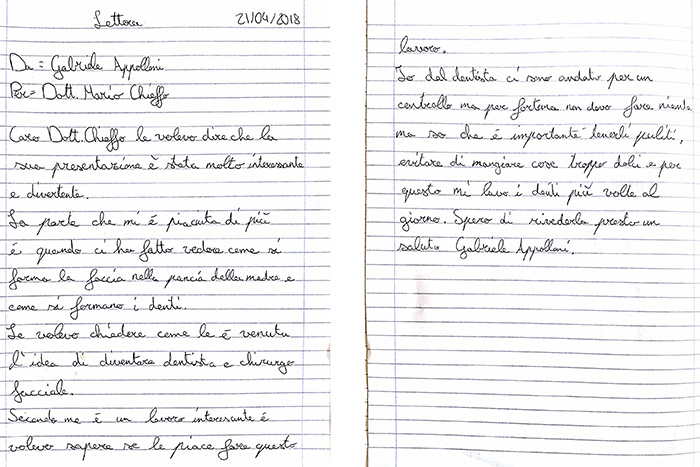 Lettera 21/04/2018
Da = Gabriele Appolloni
Per= Dott. Mario Chieffo
Caro Dott. Chieffo le volevo dire che la
sua presentazione è stata molto interessante
e divertente.
La parte che mi è piaciuta di più
è quando ci ha fatto vedere come si
forma la faccia nella pancia della madre e
come si formano i denti.
Le volevo chiedere come le è venuta
l'idea di diventare dentista e chirurgo
facciale.
Secondo me è un lavoro interesante é
volevo sapere se le piace fare questo
lavoro.
Io dal dentista ci sono andato per un
controllo ma per fortuna non devo fare niente
ma so che é importante tenerli puliti,
evitare di mangiare cose troppo dolci e per
questo mi lavo i denti più volte al
giorno. Spero di rivederla presto un
saluto Gabriele Appolloni.